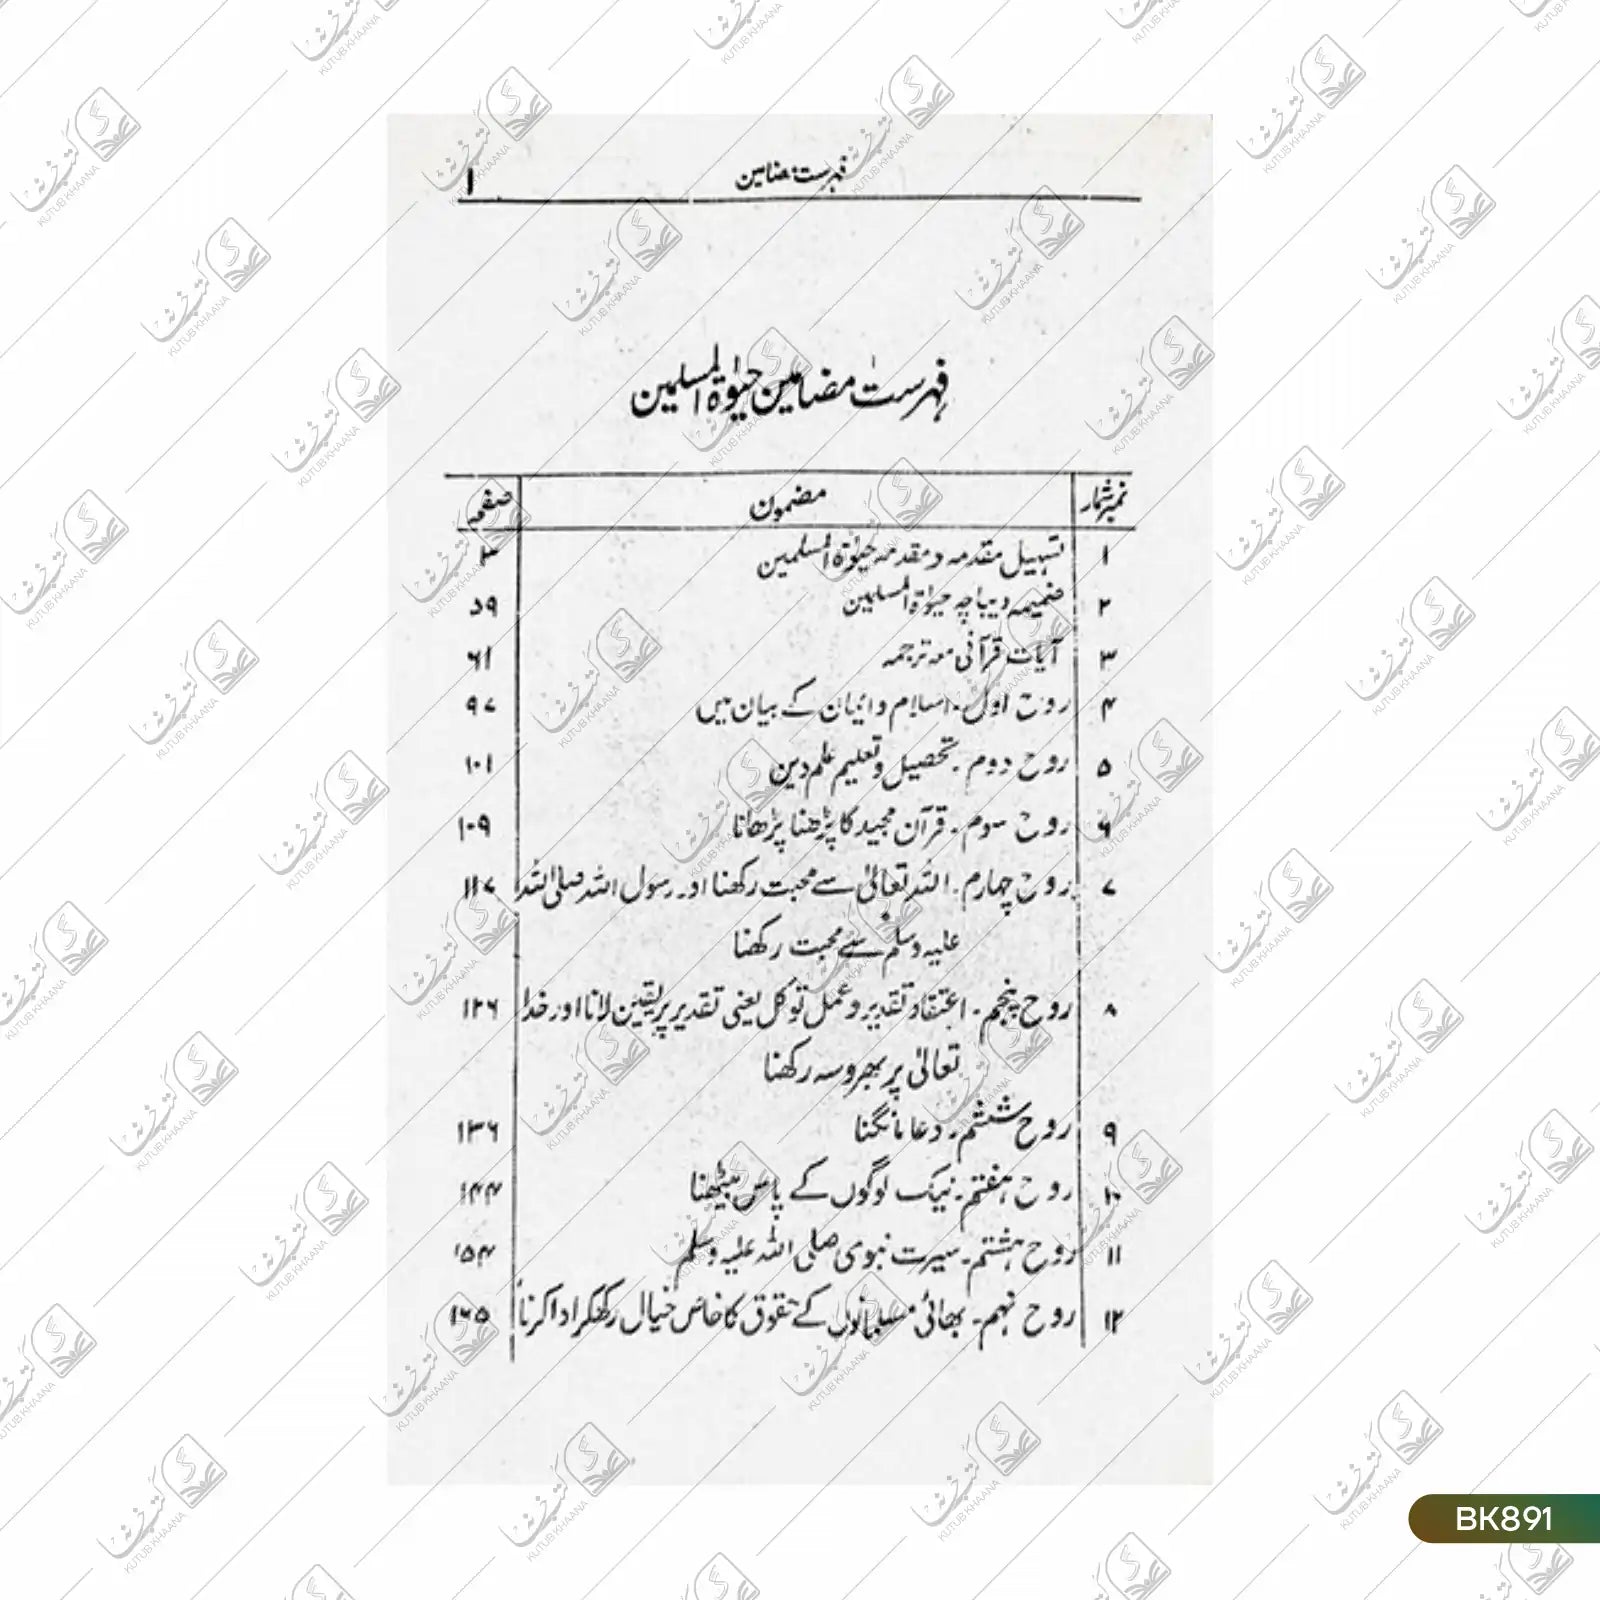 فہرست مضامین ۱
فہرست مضامین حیٰوۃ المسلمین
نمبر شمار مضمون صفحہ
۱ تسہیل مقدمہ و مقدمہ حیٰوۃ المسلمین ۳
۲ ضمیمہ دیباچہ حیوٰۃ المسلمین ۵۹
۳ آیات قرآنی معہ ترجمہ ۶۱
۴ روح اول ۔ اسلام و ایمان کے بیان میں ۹۷
۵ روح دوم ۔ تحصیل و تعلیم علم دین ۱۰۱
۶ روح سوم ۔ قرآن مجید کا پڑھنا پڑھانا ۱۰۹
۷ روح چہارم ۔ اللہ تعالیٰ سے محبت رکھنا اور رسول اللہ صلی اللہ ۱۱۷
علیہ وسلم سے محبت رکھنا
۸ روح پنجم ۔ اعتقاد تقدیر و عمل توکل یعنی تقدیر پر یقین لانا اور خدا ۱۲۶
تعالیٰ پر بھروسہ رکھنا
۹ روح ششم ۔ دعا مانگنا ۱۳۶
۱۰ روح ہفتم ۔ نیک لوگوں کے پاس بیٹھنا ۱۴۴
۱۱ روح ہشتم ۔ سیرت نبوی صلی اللہ علیہ وسلم ۱۵۴
۱۲ روح نہم ۔ بھائی مسلمانوں کے حقوق کا خاص خیال رکھکر ادا کرنا ۱۶۵
BK891
کتب خانہ
KUTUB KHAANA